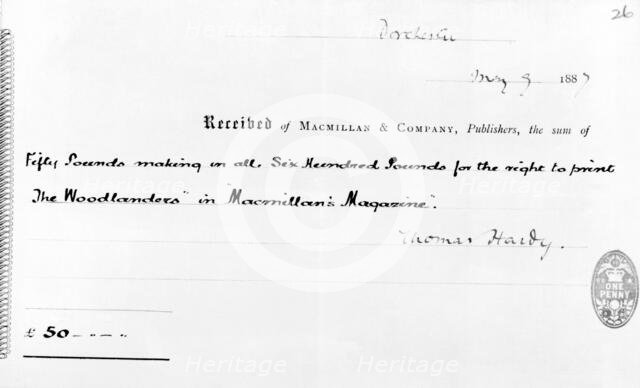 26
Dorchester
May 9 1887
Received of MACMILLAN & COMPANY, Publishers, the sum of
Fifty Pounds making in all. Six Hundred Pounds for the right to print
The Woodlanders" in "Macmillan's Magazine".
Thomas Hardy.
ONE
PENNY
£ 50 - " - "
Heritage
Heritage
Heritage
Heritage
Heritage
Heritage